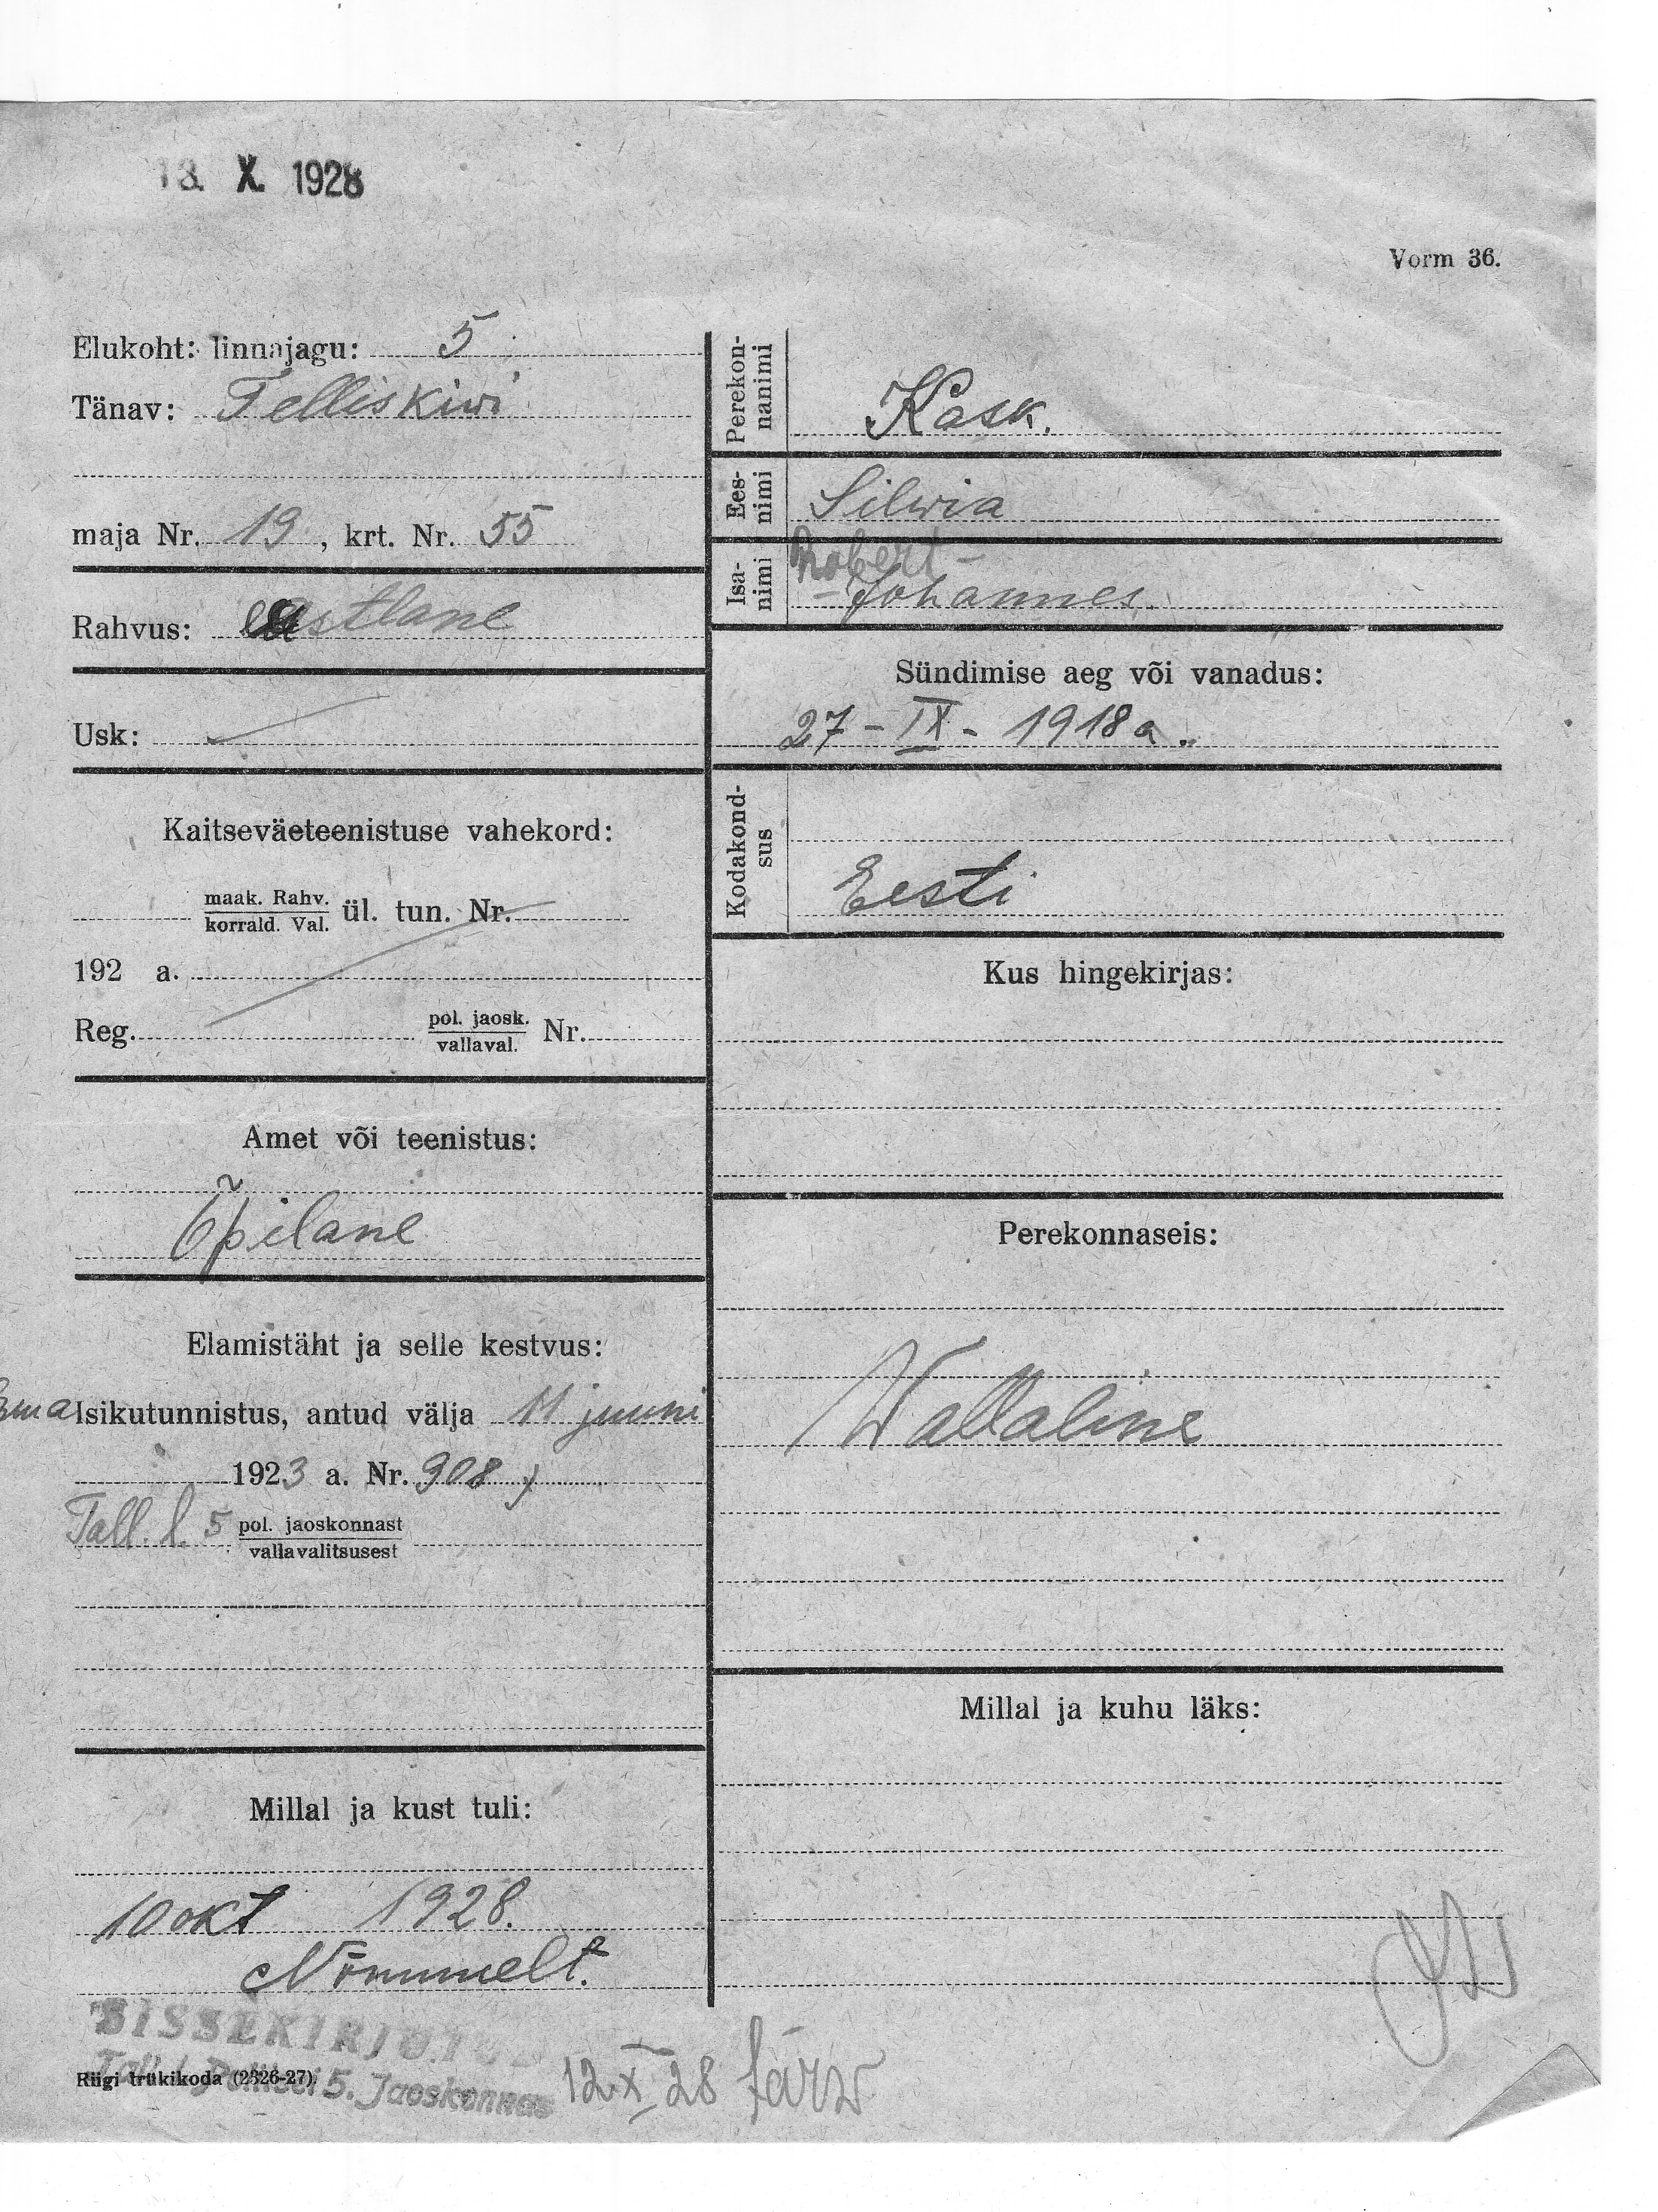 X. 1928
Vorm 36.
Elukoht: linnajagu: 5
Tänav: Telliskiwi
maja Nr. 19, krt. Nr. 55
Rahvus: eestlane
Usk:
Kaitseväeteenistuse vahekord:
maak. Rahv.
korrald. Val. ül. tun. Nr.
192 a.
Reg. pol. jaosk.
vallaval. Nr.
Amet või teenistus:
Õpilane
Elamistäht ja selle kestvus:
Isikutunnistus, antud välja 11 juuni
1923 a. Nr. 908
Tall. l. 5 pol. jaoskonnast
vallavalitsusest
Millal ja kust tuli:
10 okt 1928.
Nõmmelt.
Perekon-
nanimi
Kask.
Ees-
nimi
Silwia
Isa-
nimi
Robert -
- Johannes.
Sündimise aeg või vanadus:
27 - IX - 1918 a.
Kodakond-
sus
Eesti
Kus hingekirjas:
Perekonnaseis:
Wallaline
Millal ja kuhu läks:
SISSEKIRJUTUD
Tall. l. Politsei 5. Jaoskonnas
Riigi trükikoda (2326-27).
12 X 28